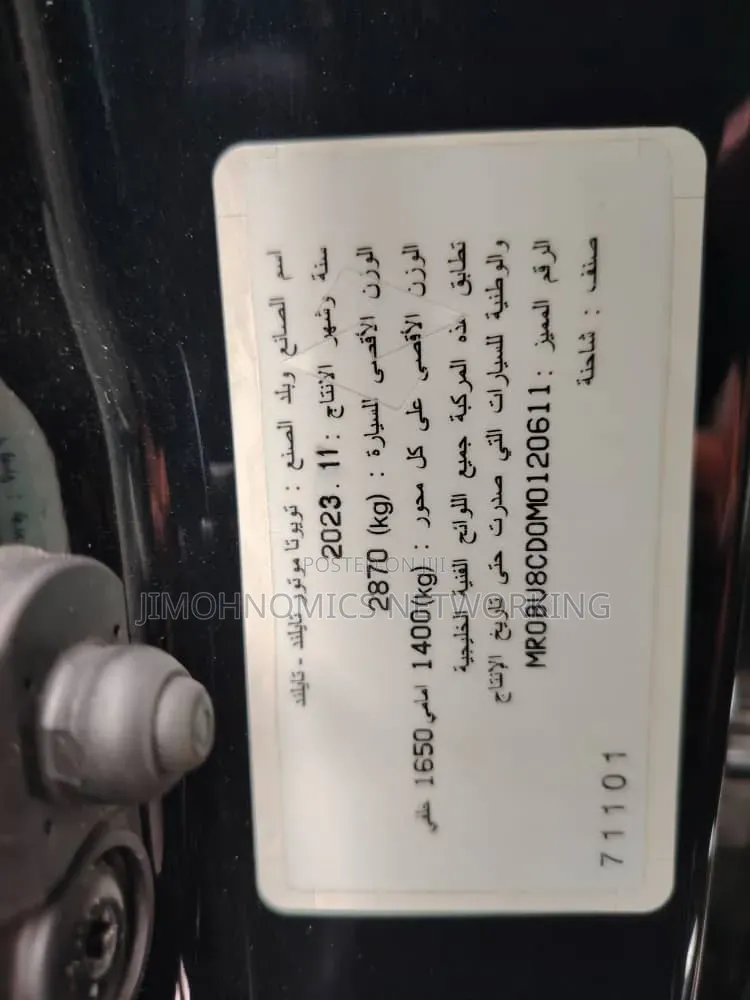 اسم الصانع وبلد الصنع : تويوتا موتور تايلند - تايلند
سنة وشهر الانتاج : 2023.11
الوزن الأقصى للسيارة : 2870 (kg)
الوزن الأقصى على كل محور : 1400(kg) امامي 1650 خلفي
تطابق هذه المركبة جميع اللوائح الفنية الخليجية
والوطنية للسيارات التي صدرت حتى تاريخ الإنتاج
الرقم المميز : MR0BU8CD0M0120611
صنف : شاحنة
71101
POSTED ON JIJI
JIMOHNOMICS NETWORKING